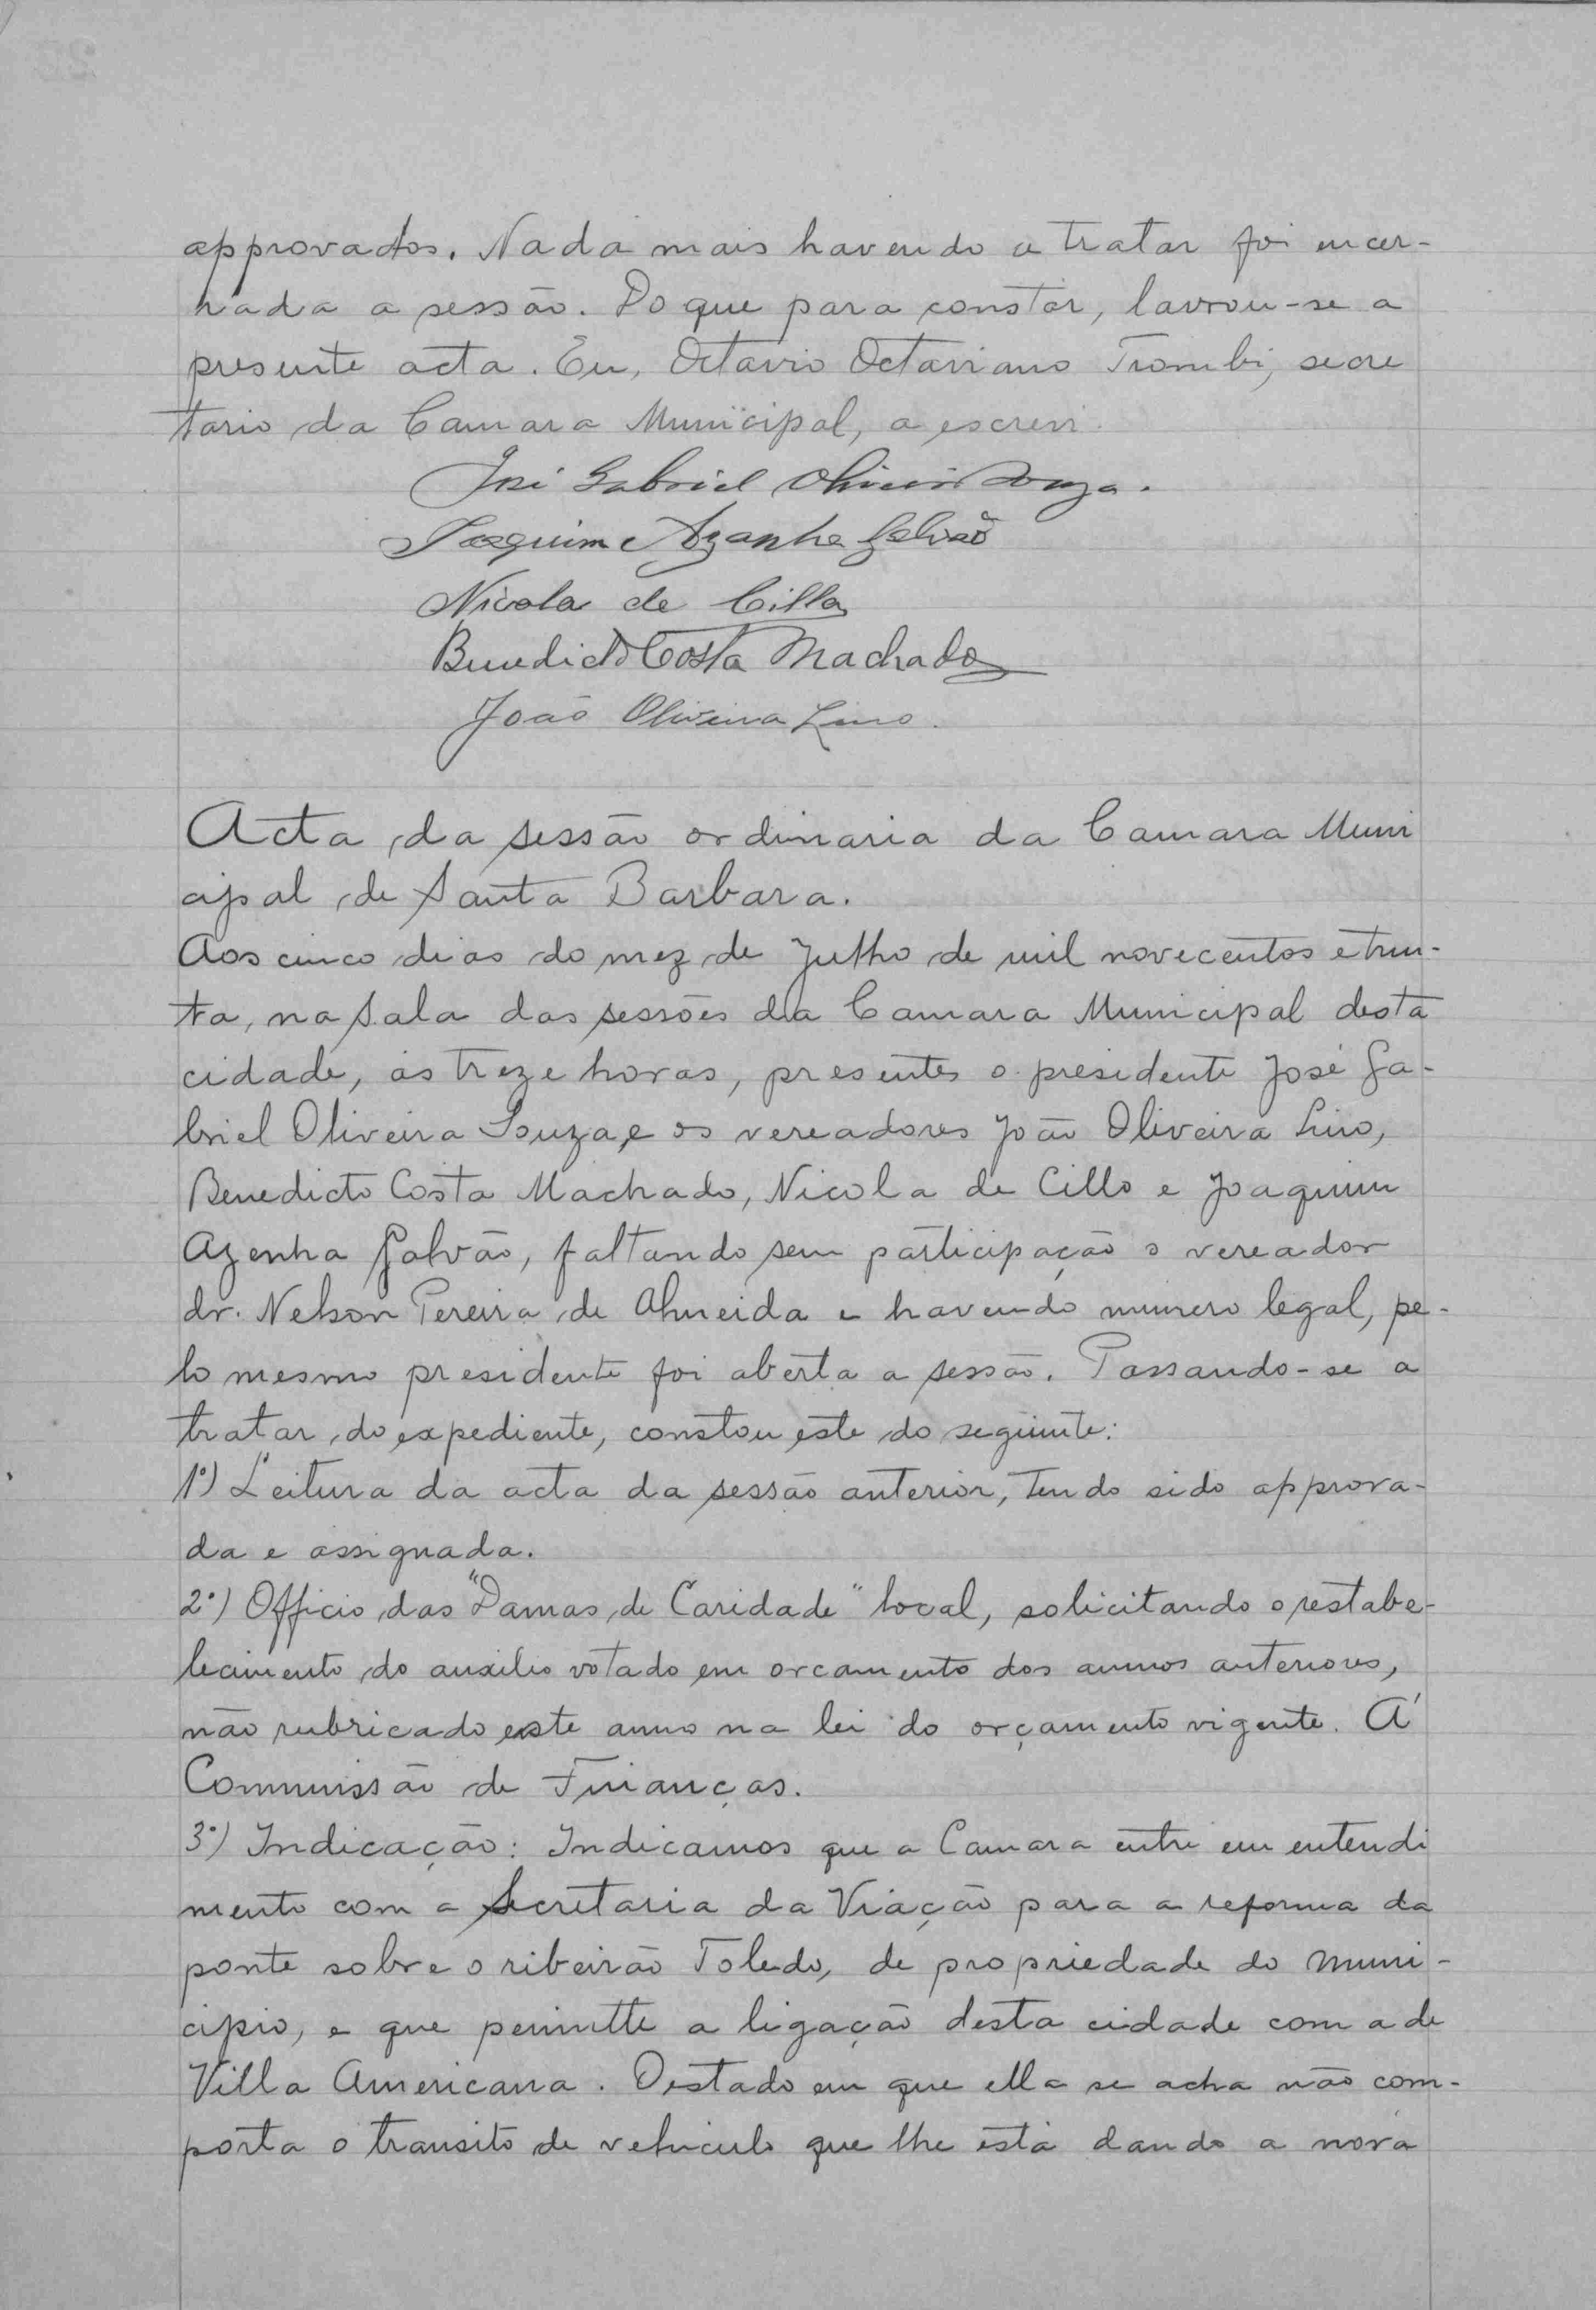 approvados. Nada mais havendo a tratar foi encer-
rada a sessão. Do que para constar, lavrou-se a
presente acta. Eu, Octavio Octaviano Trombi, secre
tario da Camara Municipal, a escrevi.
José Gabriel Oliveira Souza.
Joaquim Azanha Galvão
Nicola de Cillo
Benedicto Costa Machado
João Oliveira Lino.
Acta da sessão ordinaria da Camara Muni
cipal de Santa Barbara.
Aos cinco dias do mez de Julho de mil novecentos e trin-
ta, na sala das sessões da Camara Municipal desta
cidade, ás treze horas, presentes o presidente José Ga-
briel Oliveira Souza, e os vereadores João Oliveira Lino,
Benedicto Costa Machado, Nicola de Cillo e Joaquim
Azenha Galvão, faltando sem participação o vereador
dr. Nelson Pereira de Almeida e havendo numero legal, pe-
lo mesmo presidente foi aberta a sessão. Passando-se a
tratar do expediente, constou este do seguinte:
1º) Leitura da acta da sessão anterior, tendo sido approva-
da e assignada.
2º) Officio das "Damas de Caridade" local, solicitando o restabe-
lecimento do auxilio votado em orcamento dos annos anteriores,
não rubricado este anno na lei do orçamento vigente. Á
Commissão de Finanças.
3º) Indicação: Indicamos que a Camara entre em entendi
mento com a Secretaria da Viação para a reforma da
ponte sobre o ribeirão Toledo, de propriedade do muni-
cipio, e que permitte a ligação desta cidade com a de
Villa Americana. O estado em que ella se acha não com-
porta o transito de vehiculo que lhe está dando a nova